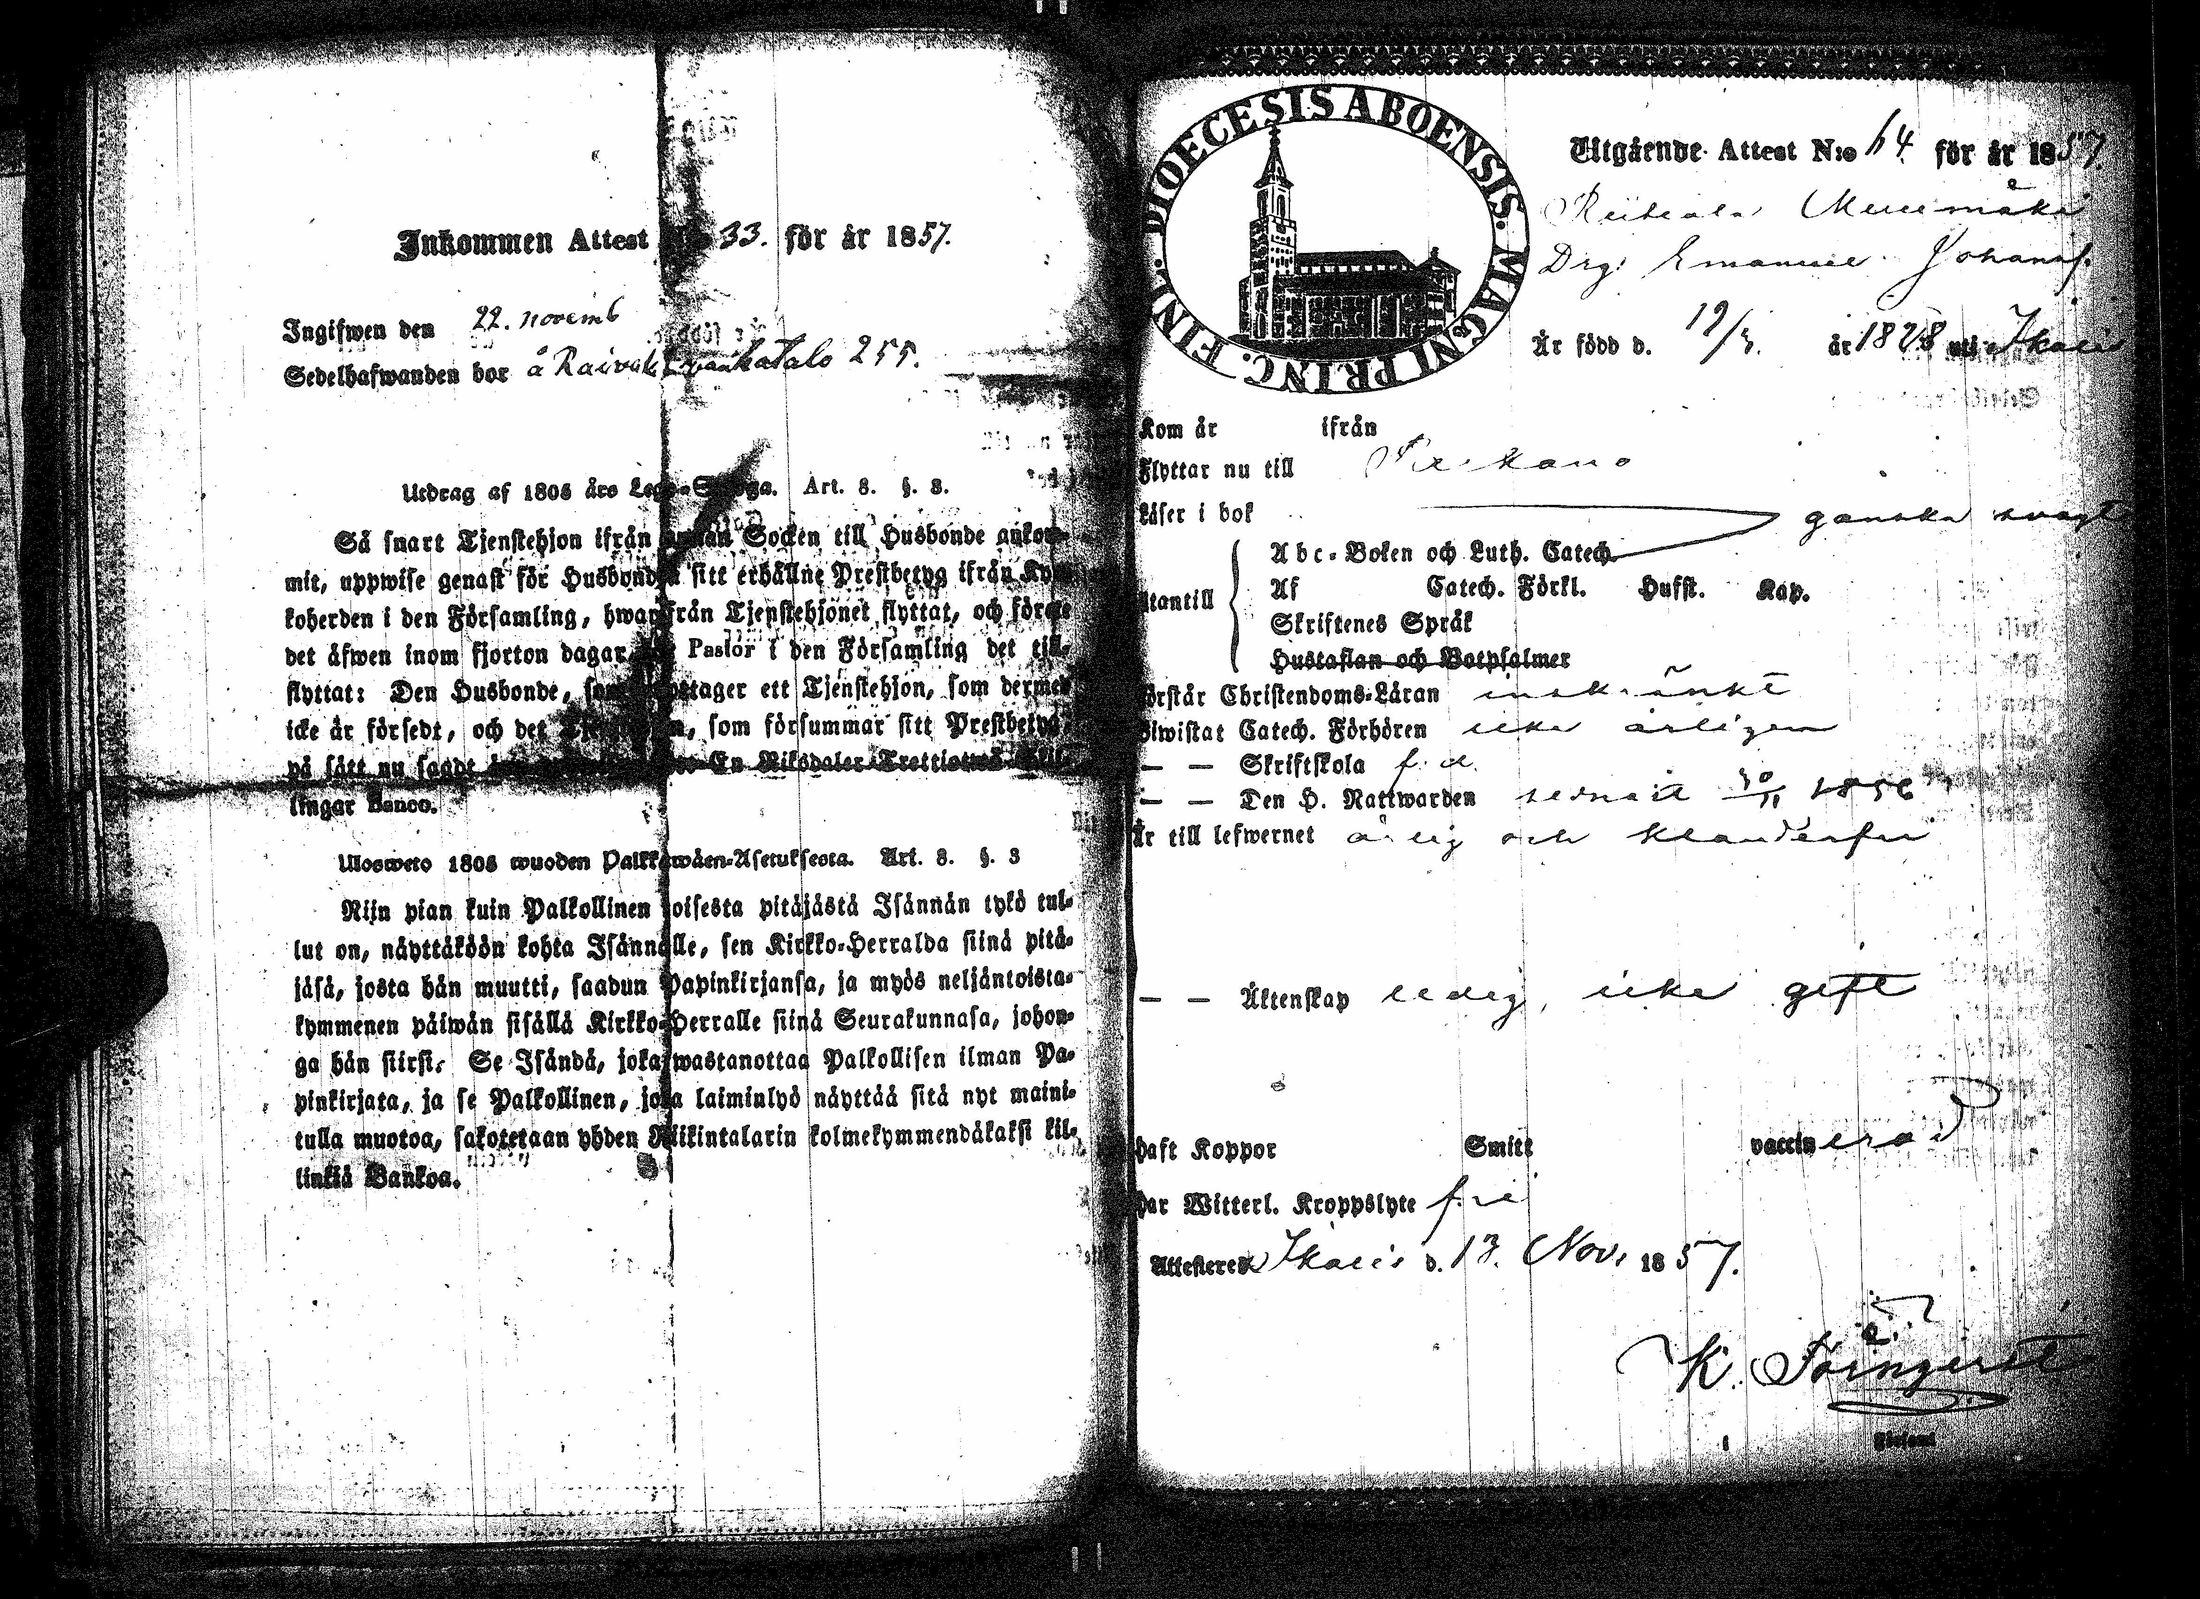 Inkommen Attest 33. för år 1857.
Ingifwen den 22. novemb
Sedelhafwanden bor å 255.
Utdrag af 1805 års Lego-Stadga. Art. 8. §. 3.
Så snart Tjenstehjon ifrån annan Socken till Husbonde ankom-
mit, uppwise genast för Husbonden sitt erhållne Prestbetyg ifrån Kyr-
koherden i den Församling, hwarifrån Tjenstehjonet flyttat, och förete
det äfwen inom fjorton dagar Pastor i den Församling det till-
flyttat: Den Husbonde, som emottager ett Tjenstehjon, som dermed
icke är försedt, och det Tjenstehjon, som försummar sitt Prestbetyg,
på sätt nu sagdt En Riksdaler Trettiotwå Skil-
lingar Banco.
Ulosweto 1805 wuoden Palkkawäen-Asetuksesta. Art. 8. §. 3
Nijn pian kuin Palkollinen toisesta pitäjästä Isännän tykö tul-
lut on, näyttäköön kohta Isännälle, sen Kirkko-Herralda siinä pitä-
jäsä, josta hän muutti, saadun Papinkirjansa, ja myös neljäntoista-
kymmenen päiwän sisällä Kirkko-Herralle siinä Seurakunnasa, johon-
ga hän siirsi. Se Isändä, joka wastanottaa Palkollisen ilman Pa-
pinkirjata, ja se Palkollinen, joka laiminlyö näyttää sitä nyt maini-
tulla muotoa, sakotetaan yhden Riikintalarin kolmekymmendäkaksi kil-
linkiä Bankoa.
DIOECESIS ABOENSIS. MAGNI PRINC. FINL.
Utgående Attest N:o 64 för år 1857
Drg: Emanuel Johansf.
Är född d. år 1828 uti Ikalis
Kom år ifrån
Flyttar nu till
Läser i bok ganska svagt
Utantill
Abc-Boken och Luth. Catech.
Af Catech. Förkl. Husst. Kap.
Skriftenes Språk
Hustaflan och Botpsalmer
Förstår Christendoms-Läran insk.änkt
Biwistat Catech. Förhören icke årligen
— — Skriftskola f. d.
— — Den H. Nattwarden senast 30/11 1856
Är till lefwernet ärlig och klanderfri
— — Äktenskap ledig, icke gift
Haft Koppor Smitt vaccinerad
Har Witterl. Kroppslyte fri
Attesteres Ikalis d. 13. Nov. 1857.